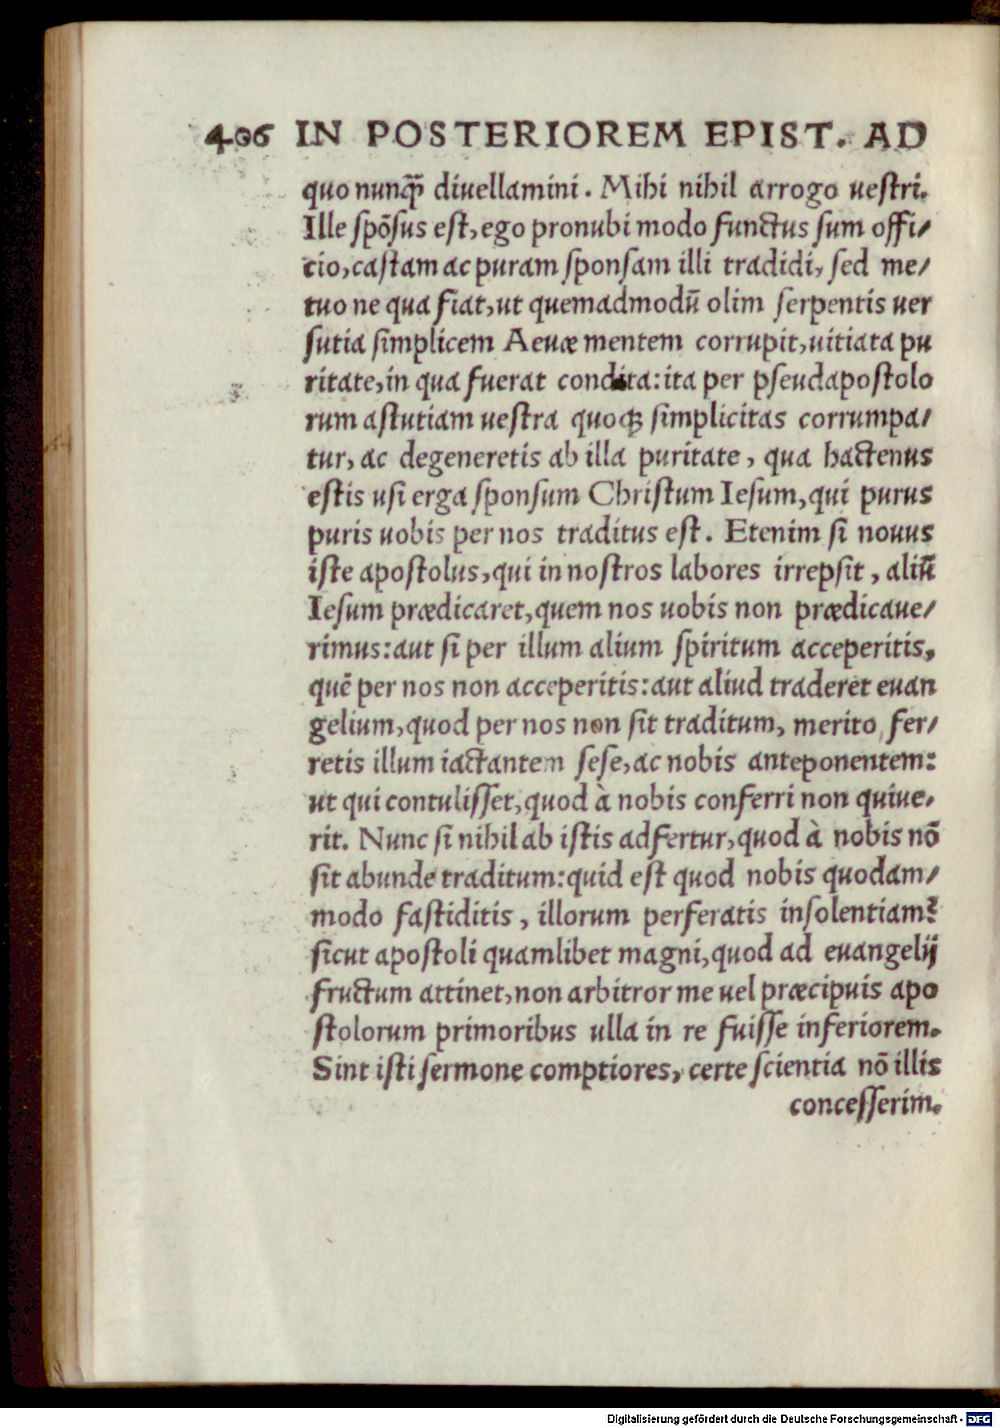 406 IN POSTERIOREM EPIST. AD
quo nunq̃ diuellamini. Mihi nihil arrogo uestri.
Ille spõsus est, ego pronubi modo functus sum offi/
cio, castam ac puram sponsam illi tradidi, sed me/
tuo ne qua fiat, ut quemadmodū olim serpentis uer
sutia simplicem Aeuæ mentem corrupit, uitiata pu
ritate, in qua fuerat condita: ita per pseudapostolo
rum astutiam uestra quoqꝫ simplicitas corrumpa/
tur, ac degeneretis ab illa puritate, qua hactenus
estis usi erga sponsum Christum Iesum, qui purus
puris uobis per nos traditus est. Etenim si nouus
iste apostolus, qui in nostros labores irrepsit, aliū
Iesum prædicaret, quem nos uobis non prædicaue/
rimus: aut si per illum alium spiritum acceperitis,
quẽ per nos non acceperitis: aut aliud traderet euan
gelium, quod per nos non sit traditum, merito fer/
retis illum iactantem sese, ac nobis anteponentem:
ut qui contulisset, quod à nobis conferri non quiue/
rit. Nunc si nihil ab istis adfertur, quod à nobis nõ
sit abunde traditum: quid est quod nobis quodam/
modo fastiditis, illorum perferatis insolentiam?
sicut apostoli quamlibet magni, quod ad euangelij
fructum attinet, non arbitror me uel præcipuis apo
stolorum primoribus ulla in re fuisse inferiorem.
Sint isti sermone comptiores, certe scientia nõ illis
concesserim.
Digitalisierung gefördert durch die Deutsche Forschungsgemeinschaft - DFG